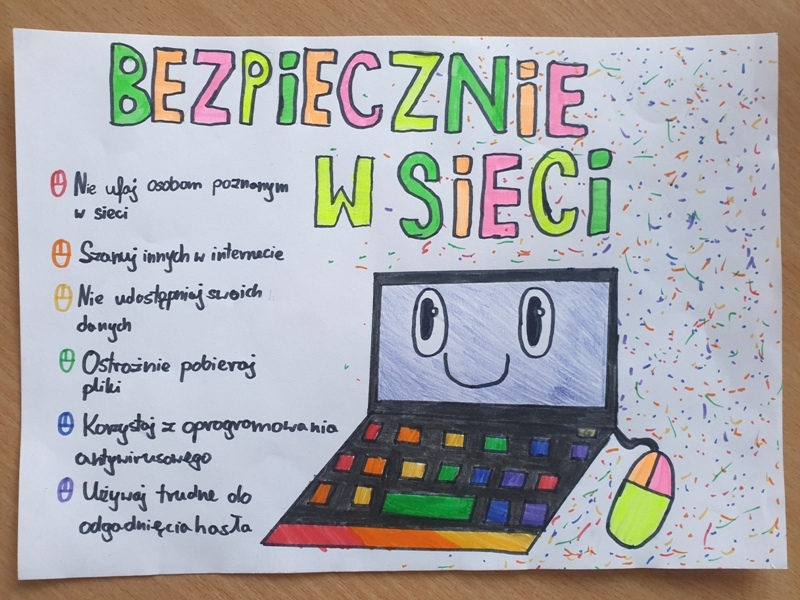 BEZPIECZNiE
W SiECi
Nie ufaj osobom poznanym
w sieci
Szanuj innych w internecie
Nie udostępniaj swoich
danych
Ostrożnie pobieraj
pliki
Korzystaj z oprogramowania
antywirusowego
Używaj trudne do
odgadnięcia hasła